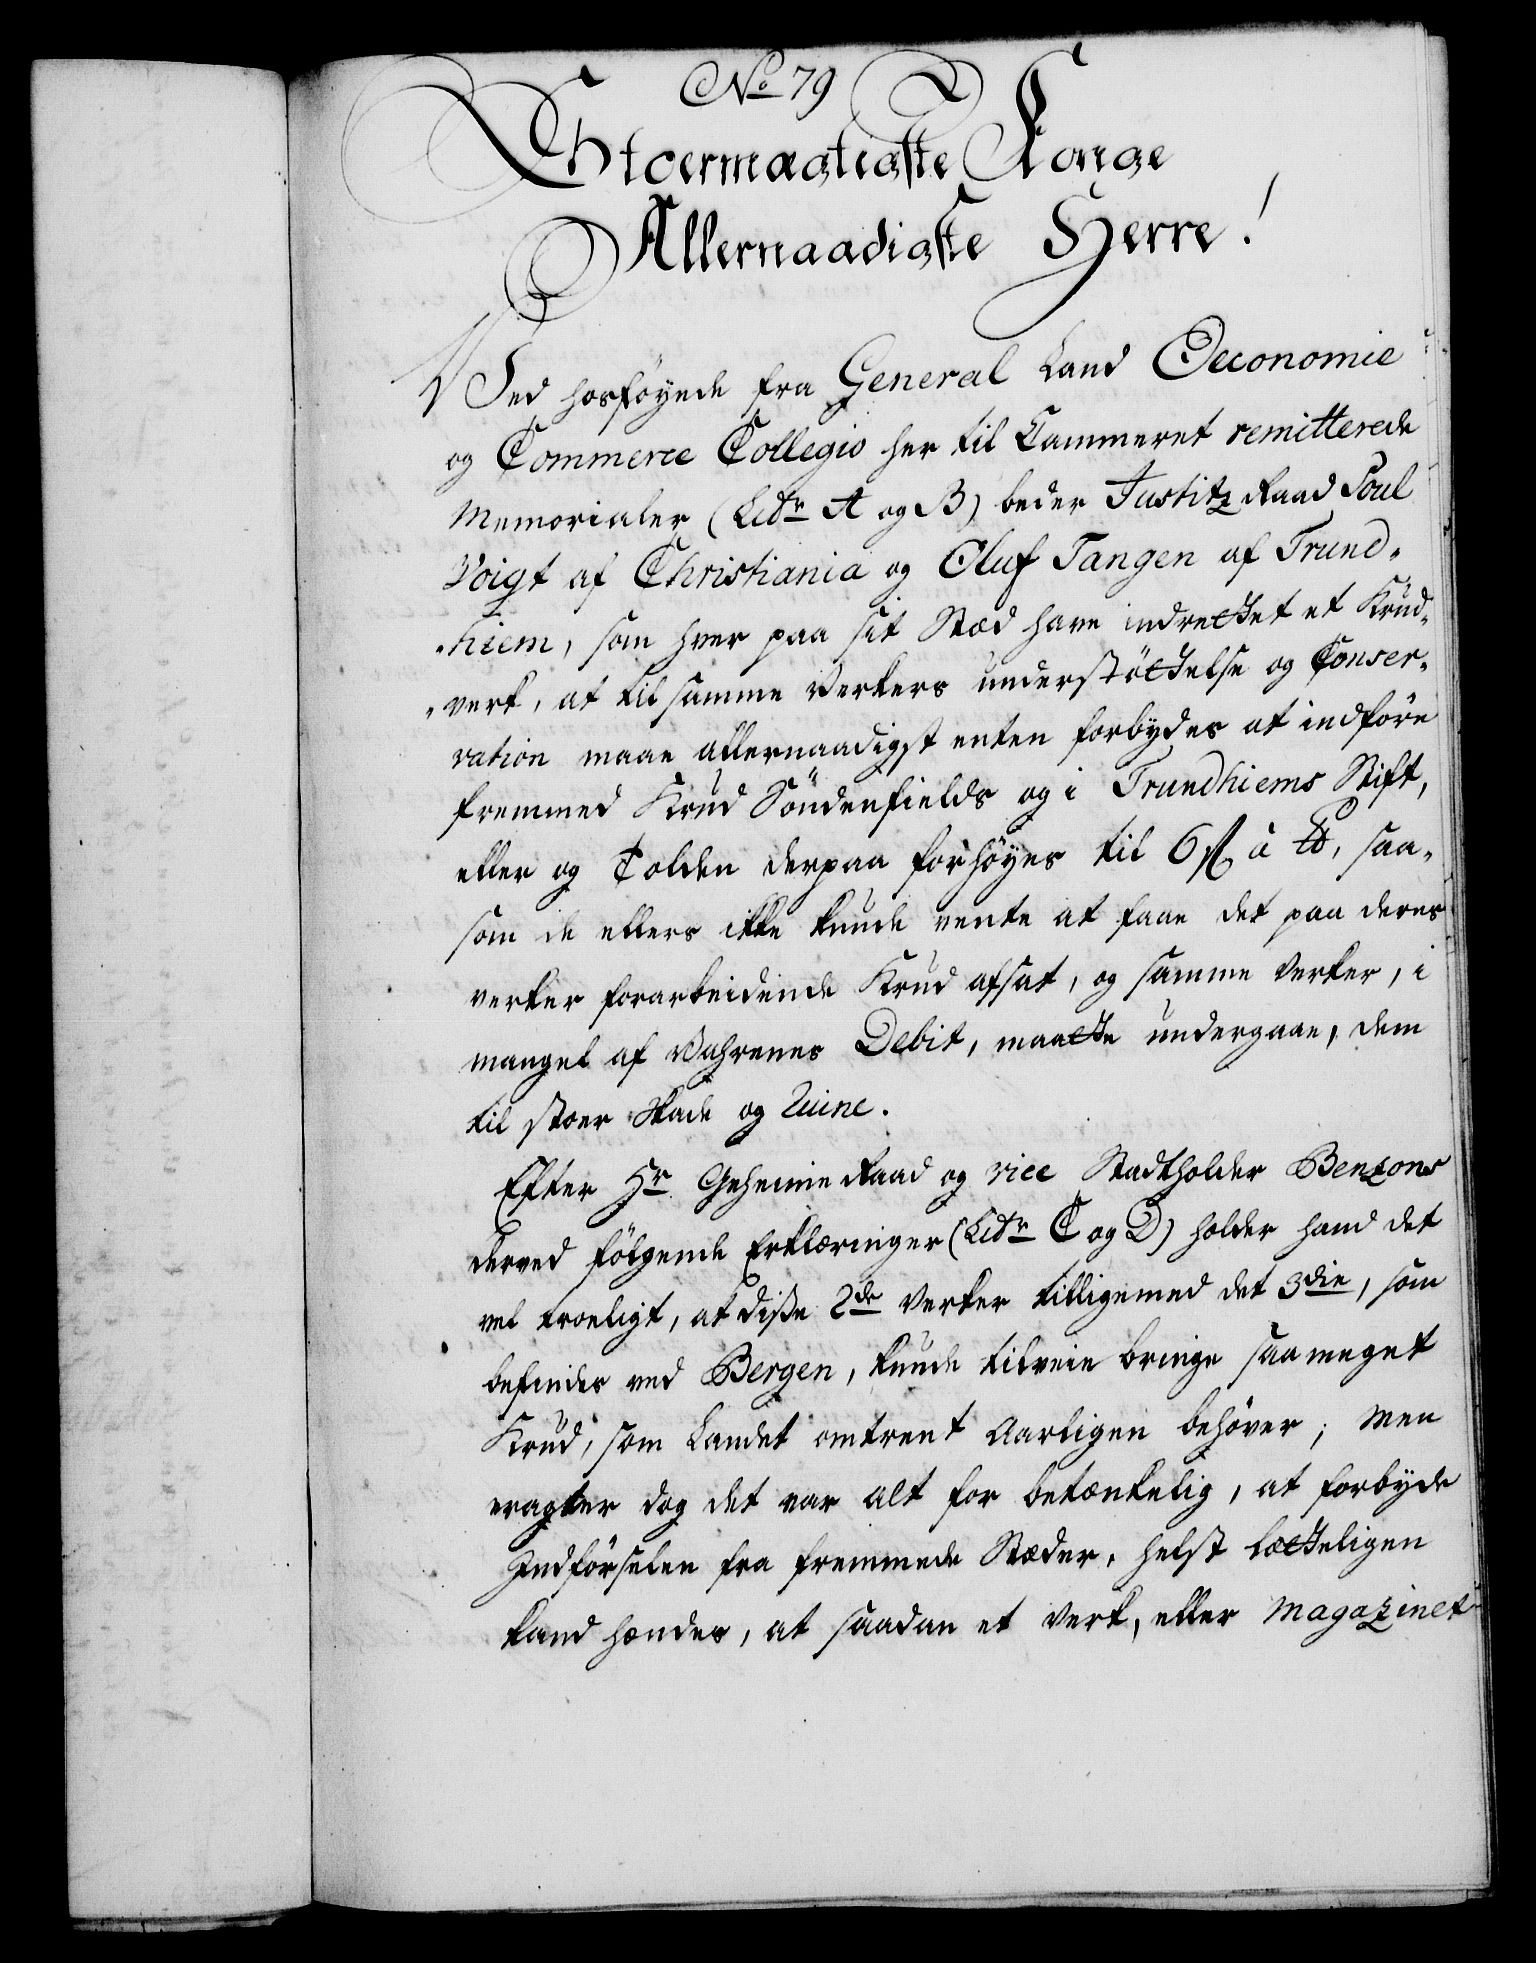 No 79
Stoermægtigste Konge
Allernaadigste Herre!
Ved hosføyede fra General Land Oeconomie
og Commerce Collegio her til Cammeret remitterede
Memorialer (Litr A og B) beder Justitz Raad Poul
Voigt af Christiania og Oluf Tangen af Trund-
-hiem, som hver paa sit Stæd have indrettet et Krud-
-verk, at til samme Verkers understöttelse og Conser-
vation maae allernaadigst enten forbydes at indföre
fremmed Krud Söndenfields og i Trundhiems Stift,
eller og Tolden derpaa forhöyes til 6 ß à ℔, saa-
som de ellers ikke kunde vente at faae det paa deres
verker forarbeidende Krud afsat, og samme Verker, i
mangel af Vahrenes Debit, maatte undergaae, dem
til stoer Skade og Ruine.
Efter Hr Geheime Raad og vice Stadtholder Benzons
derved fölgende Erklæringer (Litr C og D) holder hand det
vel troeligt, at disse 2de Verker tilligemed det 3die, som
befindes ved Bergen, kunde tilveie bringe saa meget
Krud, som Landet omtrent Aarligen behöver; Men
eragter dog det var alt for betænkelig, at forbyde
Indförselen fra fremmede Stæder, helst lætteligen
kand hændes, at saadan et Verk, eller Magazinet